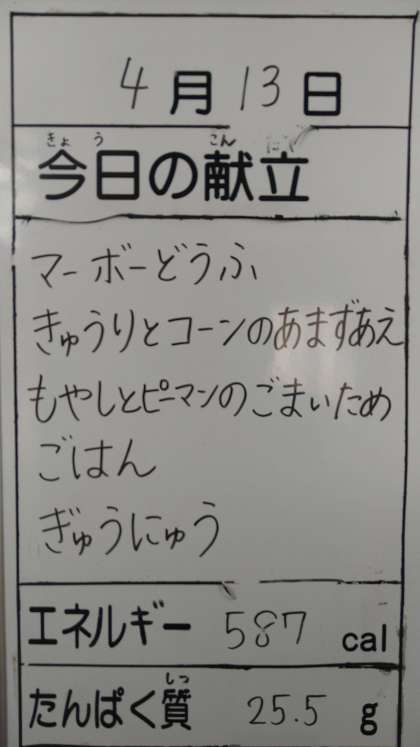 4月13日
きょう こん
今日の献立
マーボーどうふ
きゅうりとコーンのあまずあえ
もやしとピーマンのごまいため
ごはん
ぎゅうにゅう
エネルギー 587 cal
しつ
たんぱく質 25.5 g